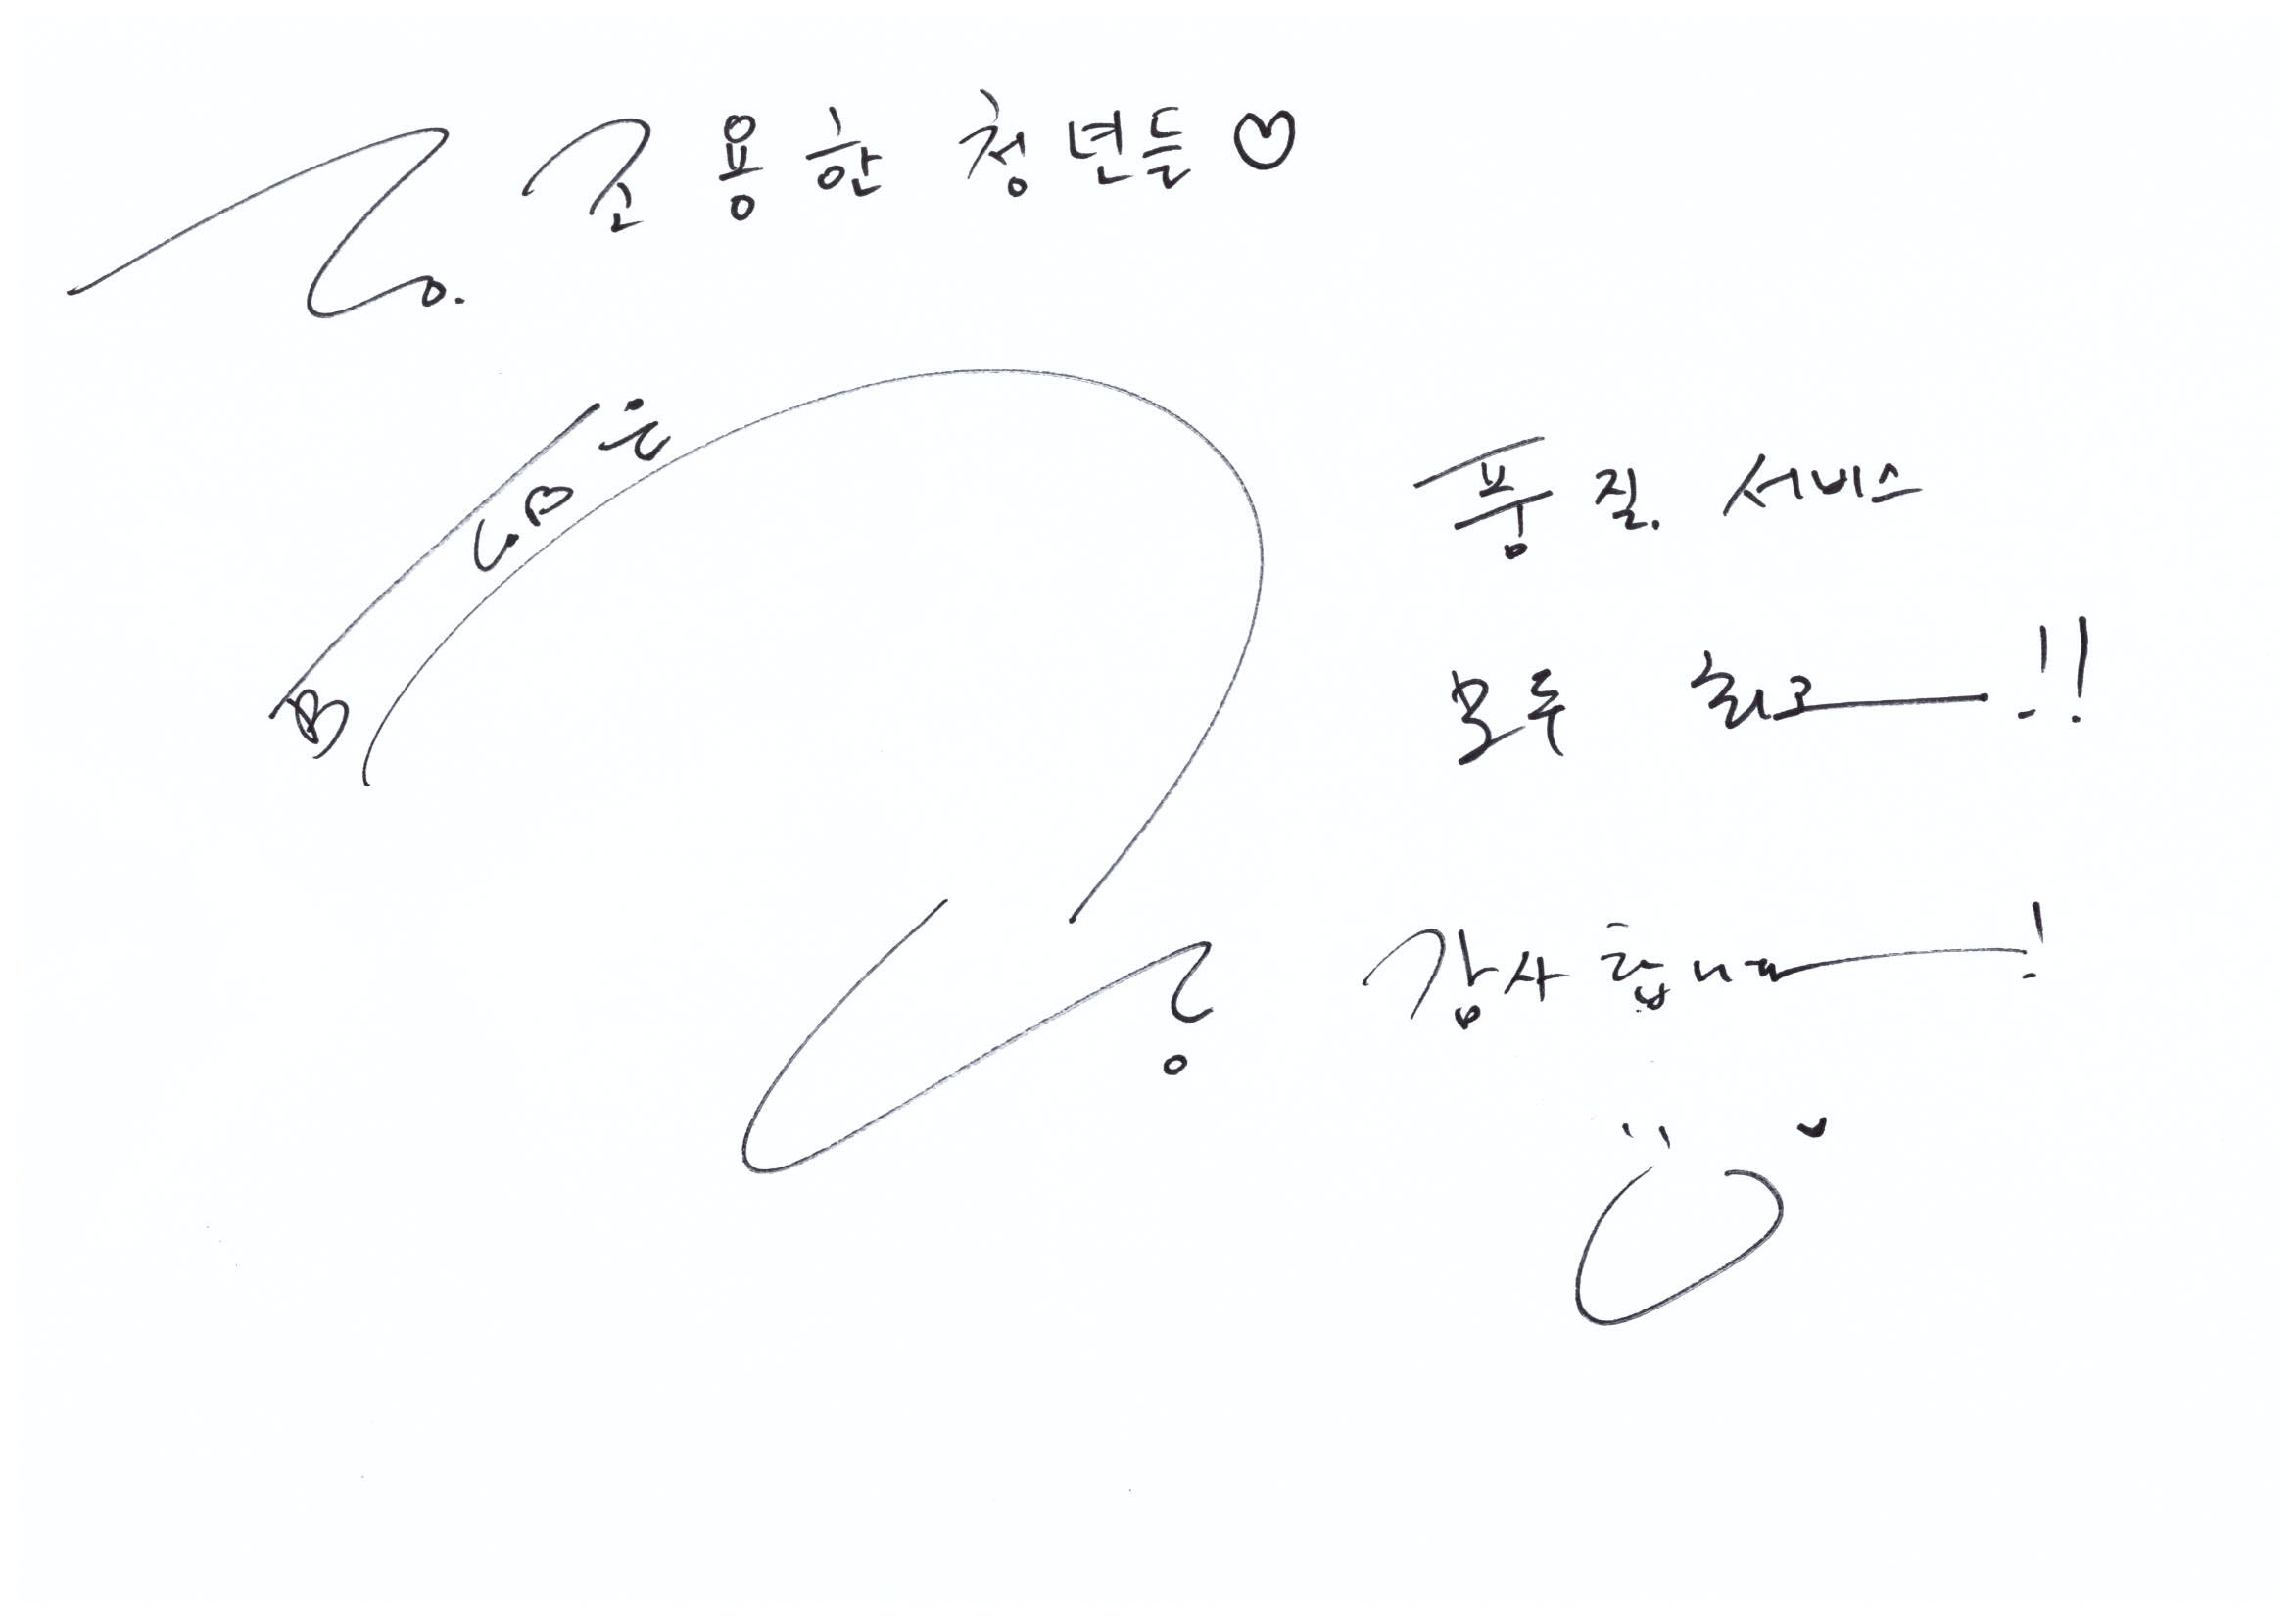 조용한 청년들♡
품질. 서비스
모두 최고!!
감사합니다!